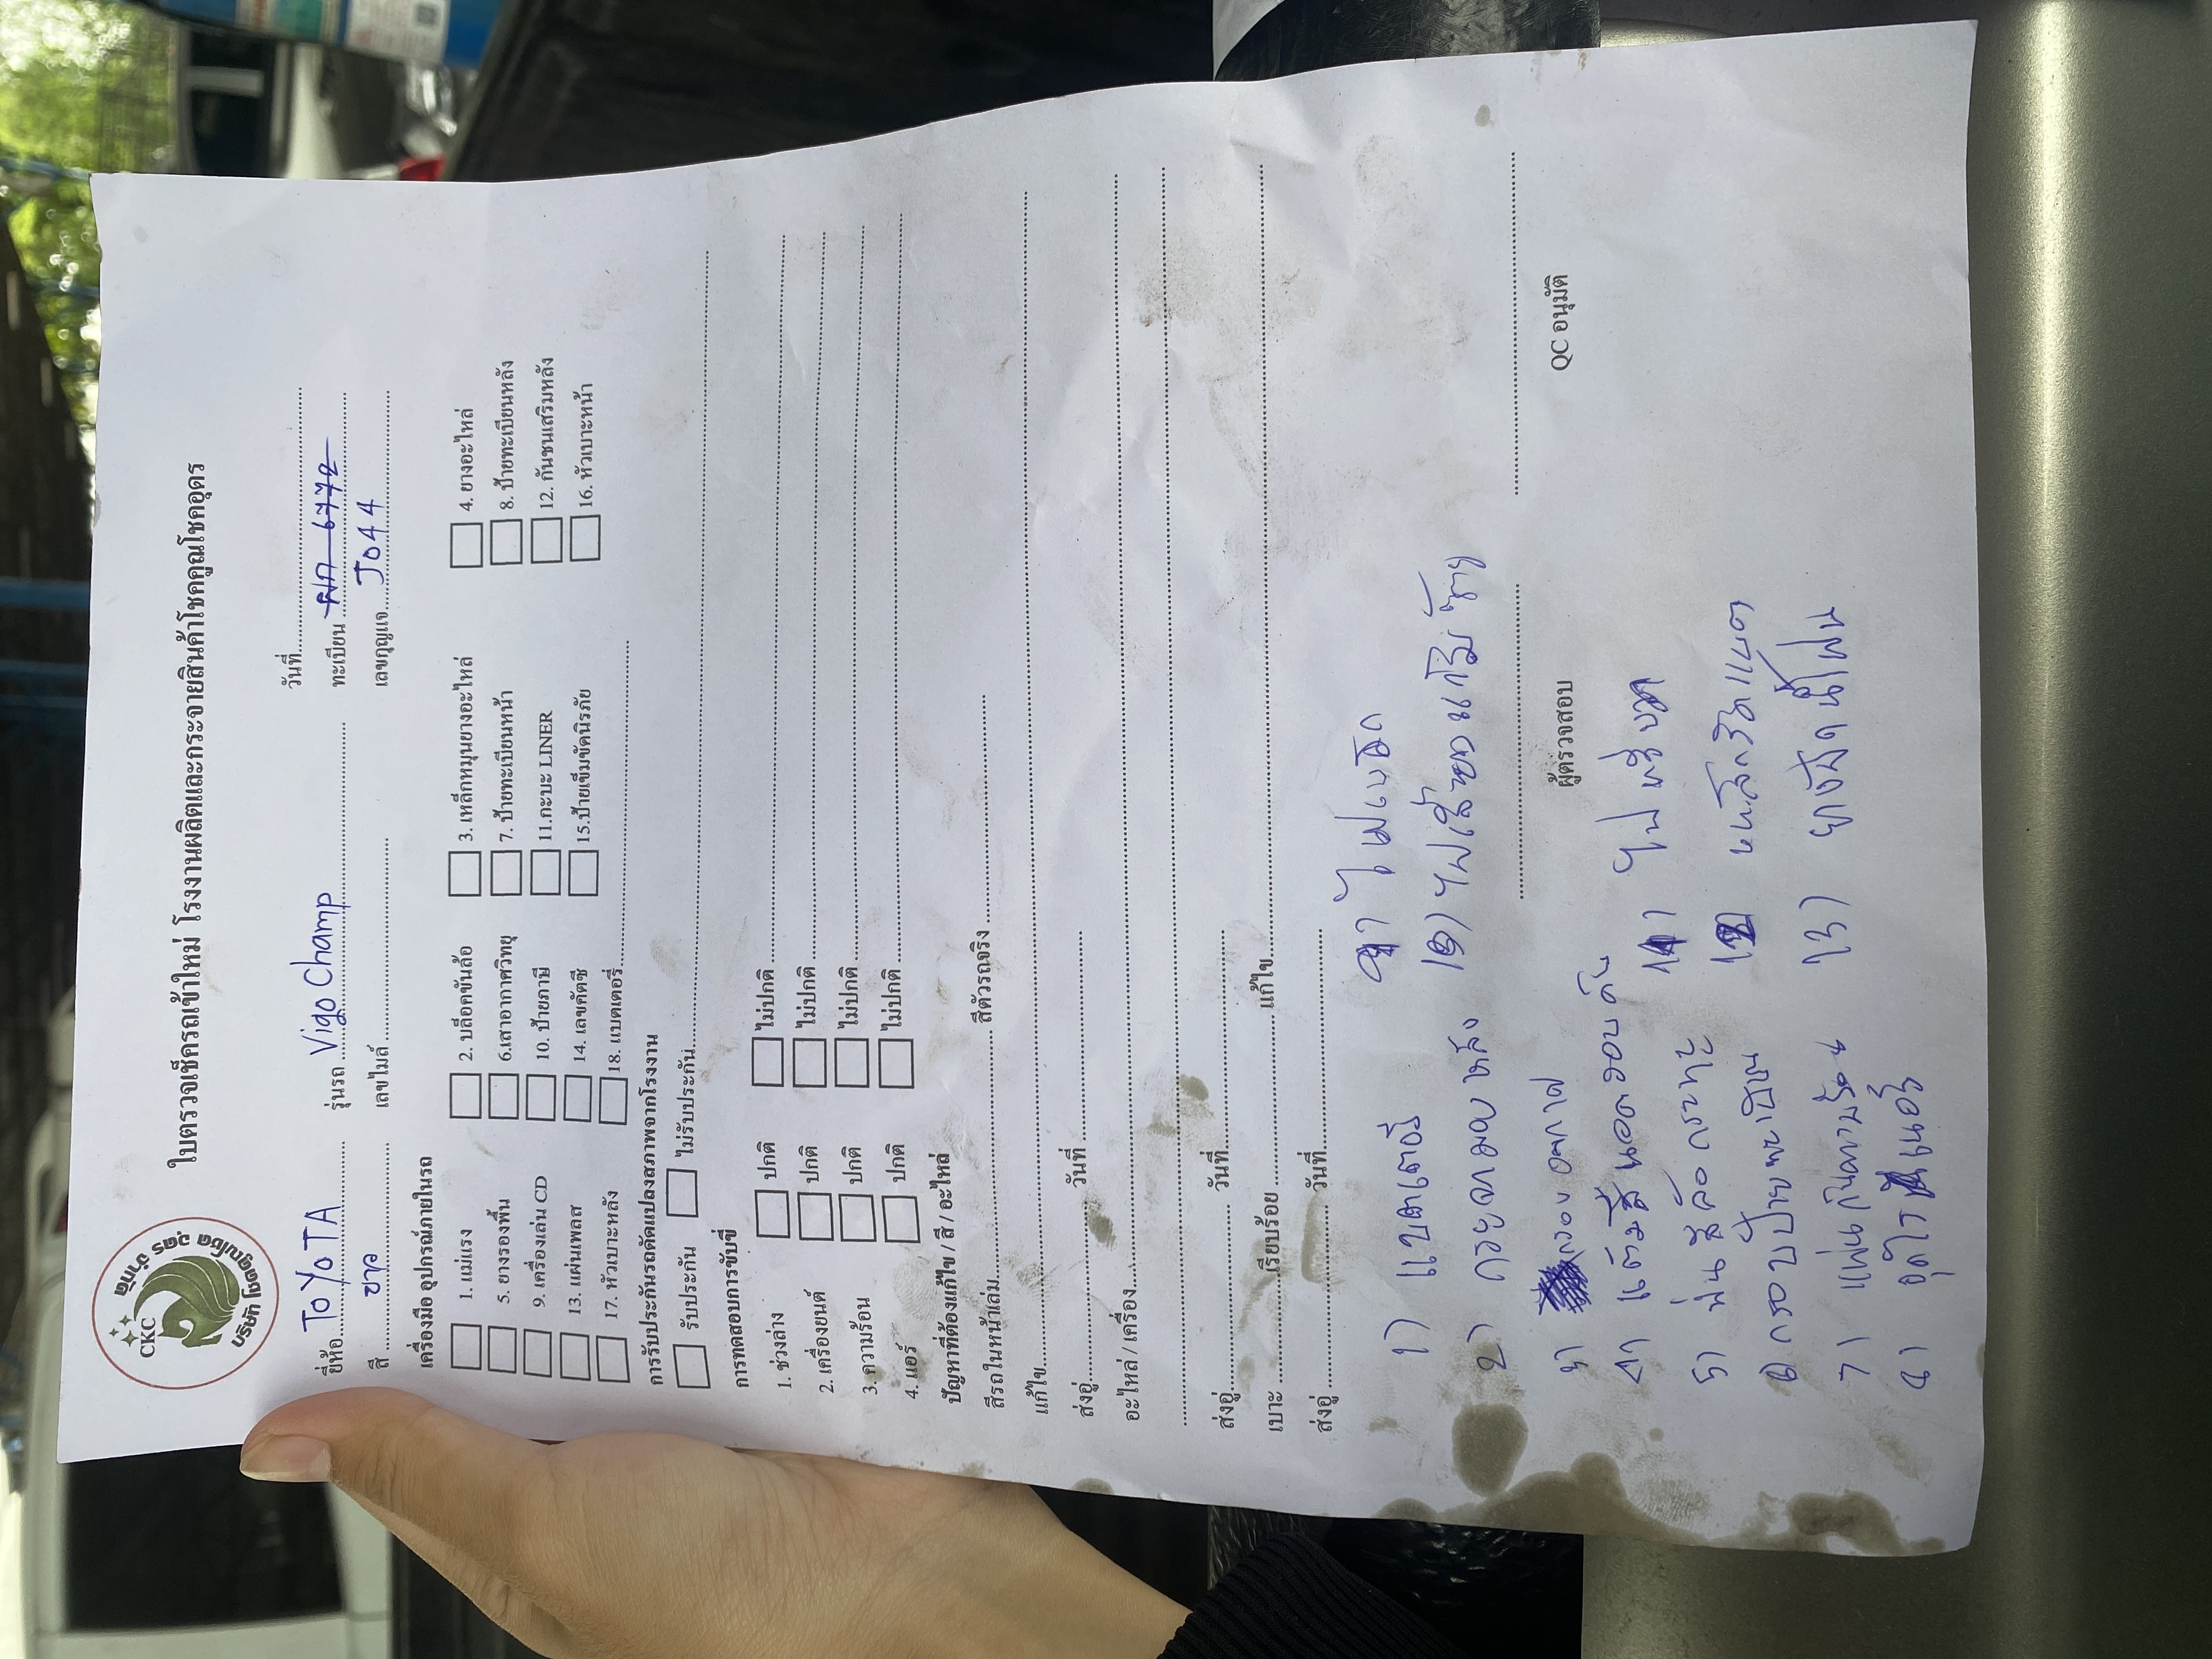 CKC
บริษัท โชคคูณโชค อุดร จำกัด
ใบตรวจเช็ครถเข้าใหม่ โรงงานผลิตและกระจายสินค้าโชคคูณโชคอุดร
วันที่
ยี่ห้อ TOYOTA รุ่นรถ Vigo Champ ทะเบียน ผก 6772
สี ขาว เลขไมล์ เลขกุญแจ J044
เครื่องมือ อุปกรณ์ภายในรถ
1. แม่แรง 2. บล็อคขันล้อ 3. เหล็กหมุนยางอะไหล่ 4. ยางอะไหล่
5. ยางรองพื้น 6.เสาอากาศวิทยุ 7. ป้ายทะเบียนหน้า 8. ป้ายทะเบียนหลัง
9. เครื่องเล่น CD 10. ป้ายภาษี 11.กะบะ LINER 12. กันชนเสริมหลัง
13. แผ่นเพลส 14. เลขคัตซี 15.ป้ายเข็มขัดนิรภัย 16. หัวเบาะหน้า
17. หัวเบาะหลัง 18. แบตเตอรี่
การรับประกันรถดัดแปลงสภาพจากโรงงาน
รับประกัน ไม่รับประกัน
การทดสอบการขับขี่
1. ช่วงล่าง ปกติ ไม่ปกติ
2. เครื่องยนต์ ปกติ ไม่ปกติ
3. ความร้อน ปกติ ไม่ปกติ
4. แอร์ ปกติ ไม่ปกติ
ปัญหาที่ต้องแก้ไข / สี / อะไหล่
สีรถในหน้าเล่ม สีตัวรถจริง
แก้ไข
ส่งอู่ วันที่
อะไหล่ / เครื่อง
ส่งอู่ วันที่
เบาะ เรียบร้อย แก้ไข
ส่งอู่ วันที่
1) แบตเตอรี่ ไฟเบรค
2) กระจกมองหลัง 10) ไฟเลี้ยวแก้มซ้าย
ผู้ตรวจสอบ QC อนุมัติ
3) กรองอากาศ
4) แต้มสีนอครอบคัน 11) ไฟหรี่
5) พ่นสีล้อกระทะ 12
6 กรอบป้ายทะเบียน
7) แผ่นกันความร้อน 13)